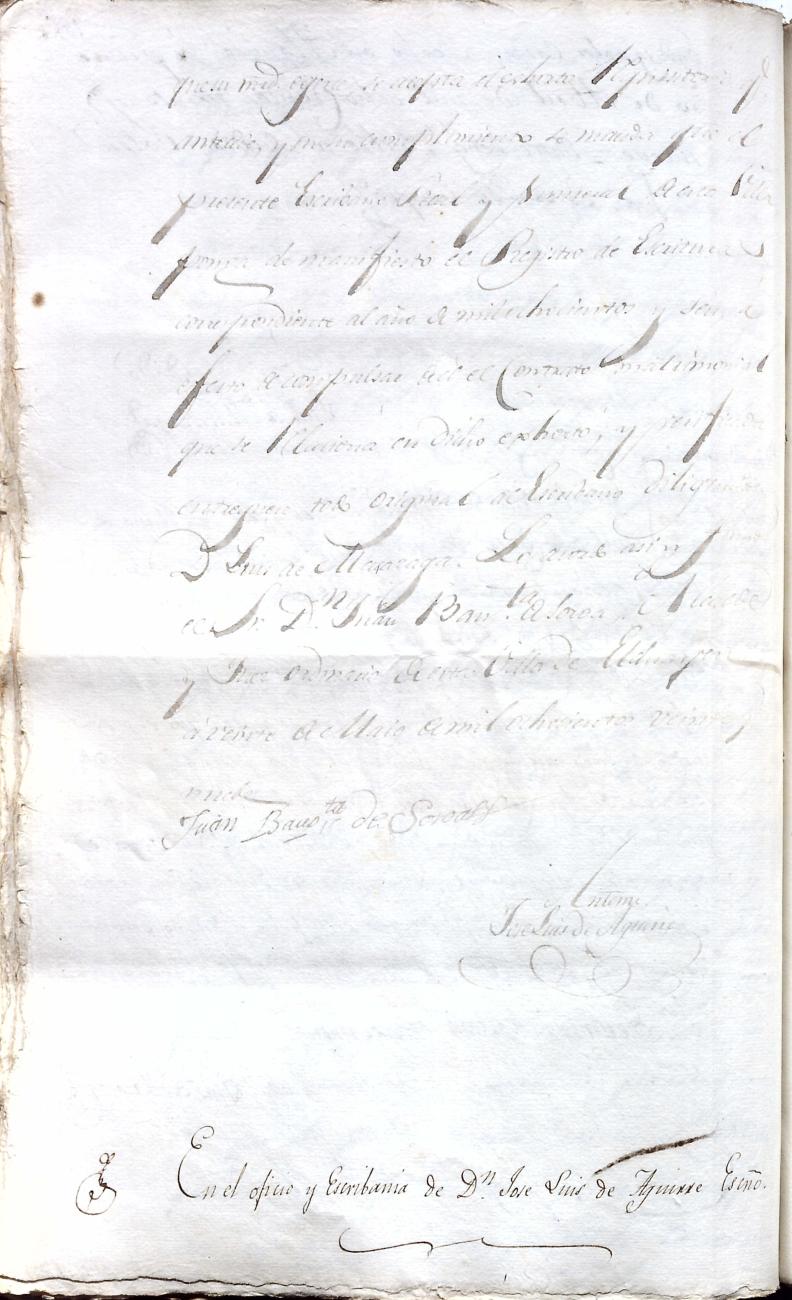 se acepta el exhorto Requisitorio
antecede, y en su cumplimiento se manda que el
presente Escribano Real y Numeral de esta Villa
ponga de manifiesto el Registro de Escrituras
correspondiente al año de mil ochocientos y seis, a
efecto de compulsar de el el Contrato matrimonial
que se relaciona en dicho exhorto, y
entreguese todo original al Escribano diligenciero
D. Luis de . Lo decretó así y firmó
el Sr. Dn. Juan Bauta. de Soroa, Alcalde
y Juez ordinario de esta Villa de
á veinte de Maio de mil ochocientos veinte y
nuebe
Juan Bauta de Soroa
Antemi
Jose Luis de Aguirre
En el oficio y Escribania de Dn. Jose Luis de Aguirre Esno.